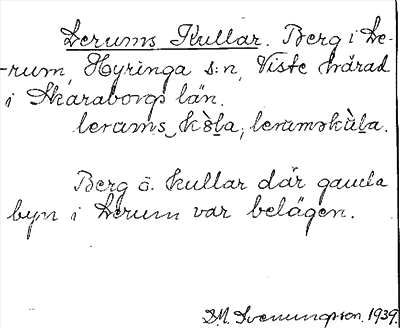 Lerums Kullar. Berg i Le-
rum, Hyringa s:n, Viste härad
i Skaraborgs län.
lerums kòla, lerumskùla.
Berg o. kullar där gamla
byn i Lerum var belägen.
D.M. Svenungsson. 1939.